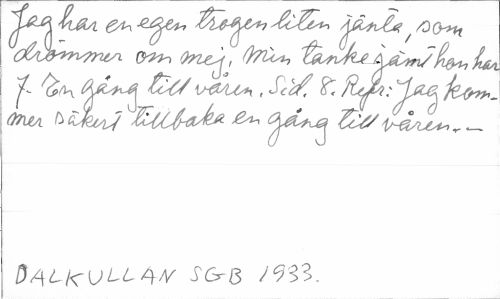 Jag har en egen trogen liten jänta, som
drömmer om mej. Min tanke jämt hon har
7. En gång till våren. Sid. 8. Refr: Jag kom-
mer säkert tillbaka en gång till våren. -
DALKULLAN SGB 1933.